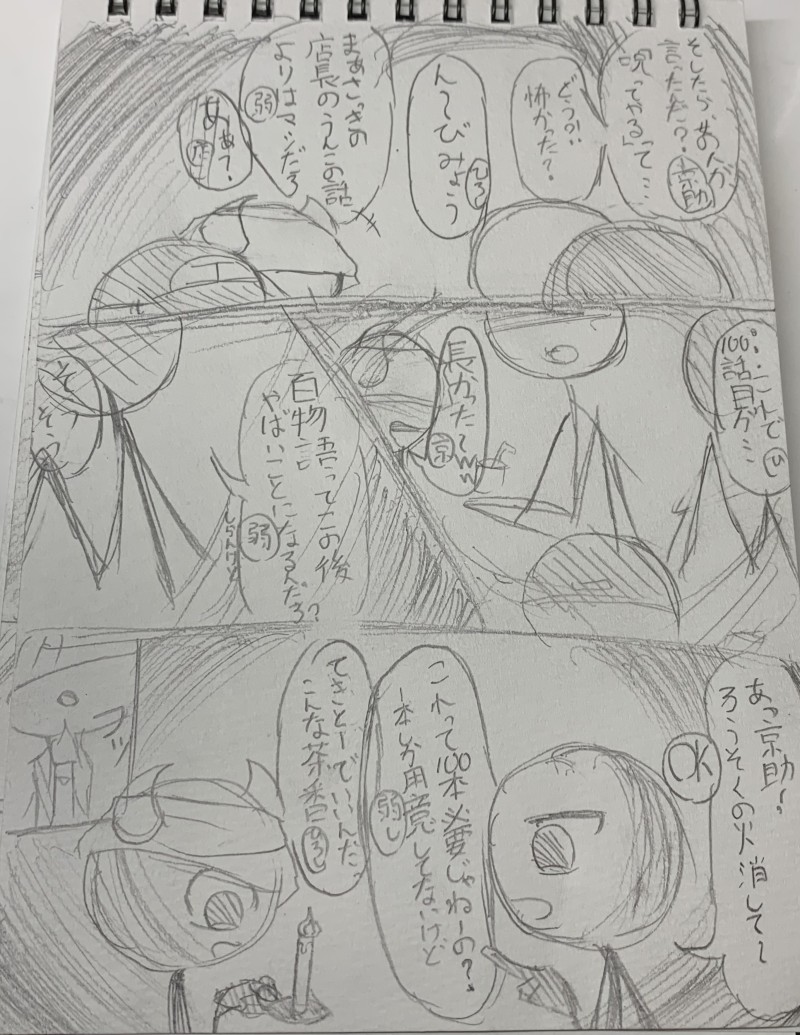 そしたら、あんが
言っただ?
「呪ってやる」って…
京助
どう?!
怖かった?
ん〜びみょう
ひろし
まぁさっきの
店長のうんこの話
よりはマシだろ
弱
あぁ?
店
これで
100話目が…
ひ
長かった〜ww
京
百物語ってこの後
やばいことになるんだろ?
しらんけど
弱
そ
そう
あっ京助〜
ろうそくの火消して〜
OK
これって100本必要じゃねーの?
一本しか用意してないけど
弱し
てきとーでいいんだ
こんな茶番
ひろし
フッ